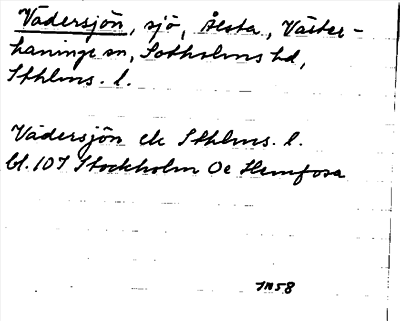 Vädersjön, sjö, Ålsta, Väster-
haninge sn, Sotholms hd,
Sthlms. l.
Vädersjön ek Sthlms. l.
bl. 107 Stockholm Oe Hemfosa
1958